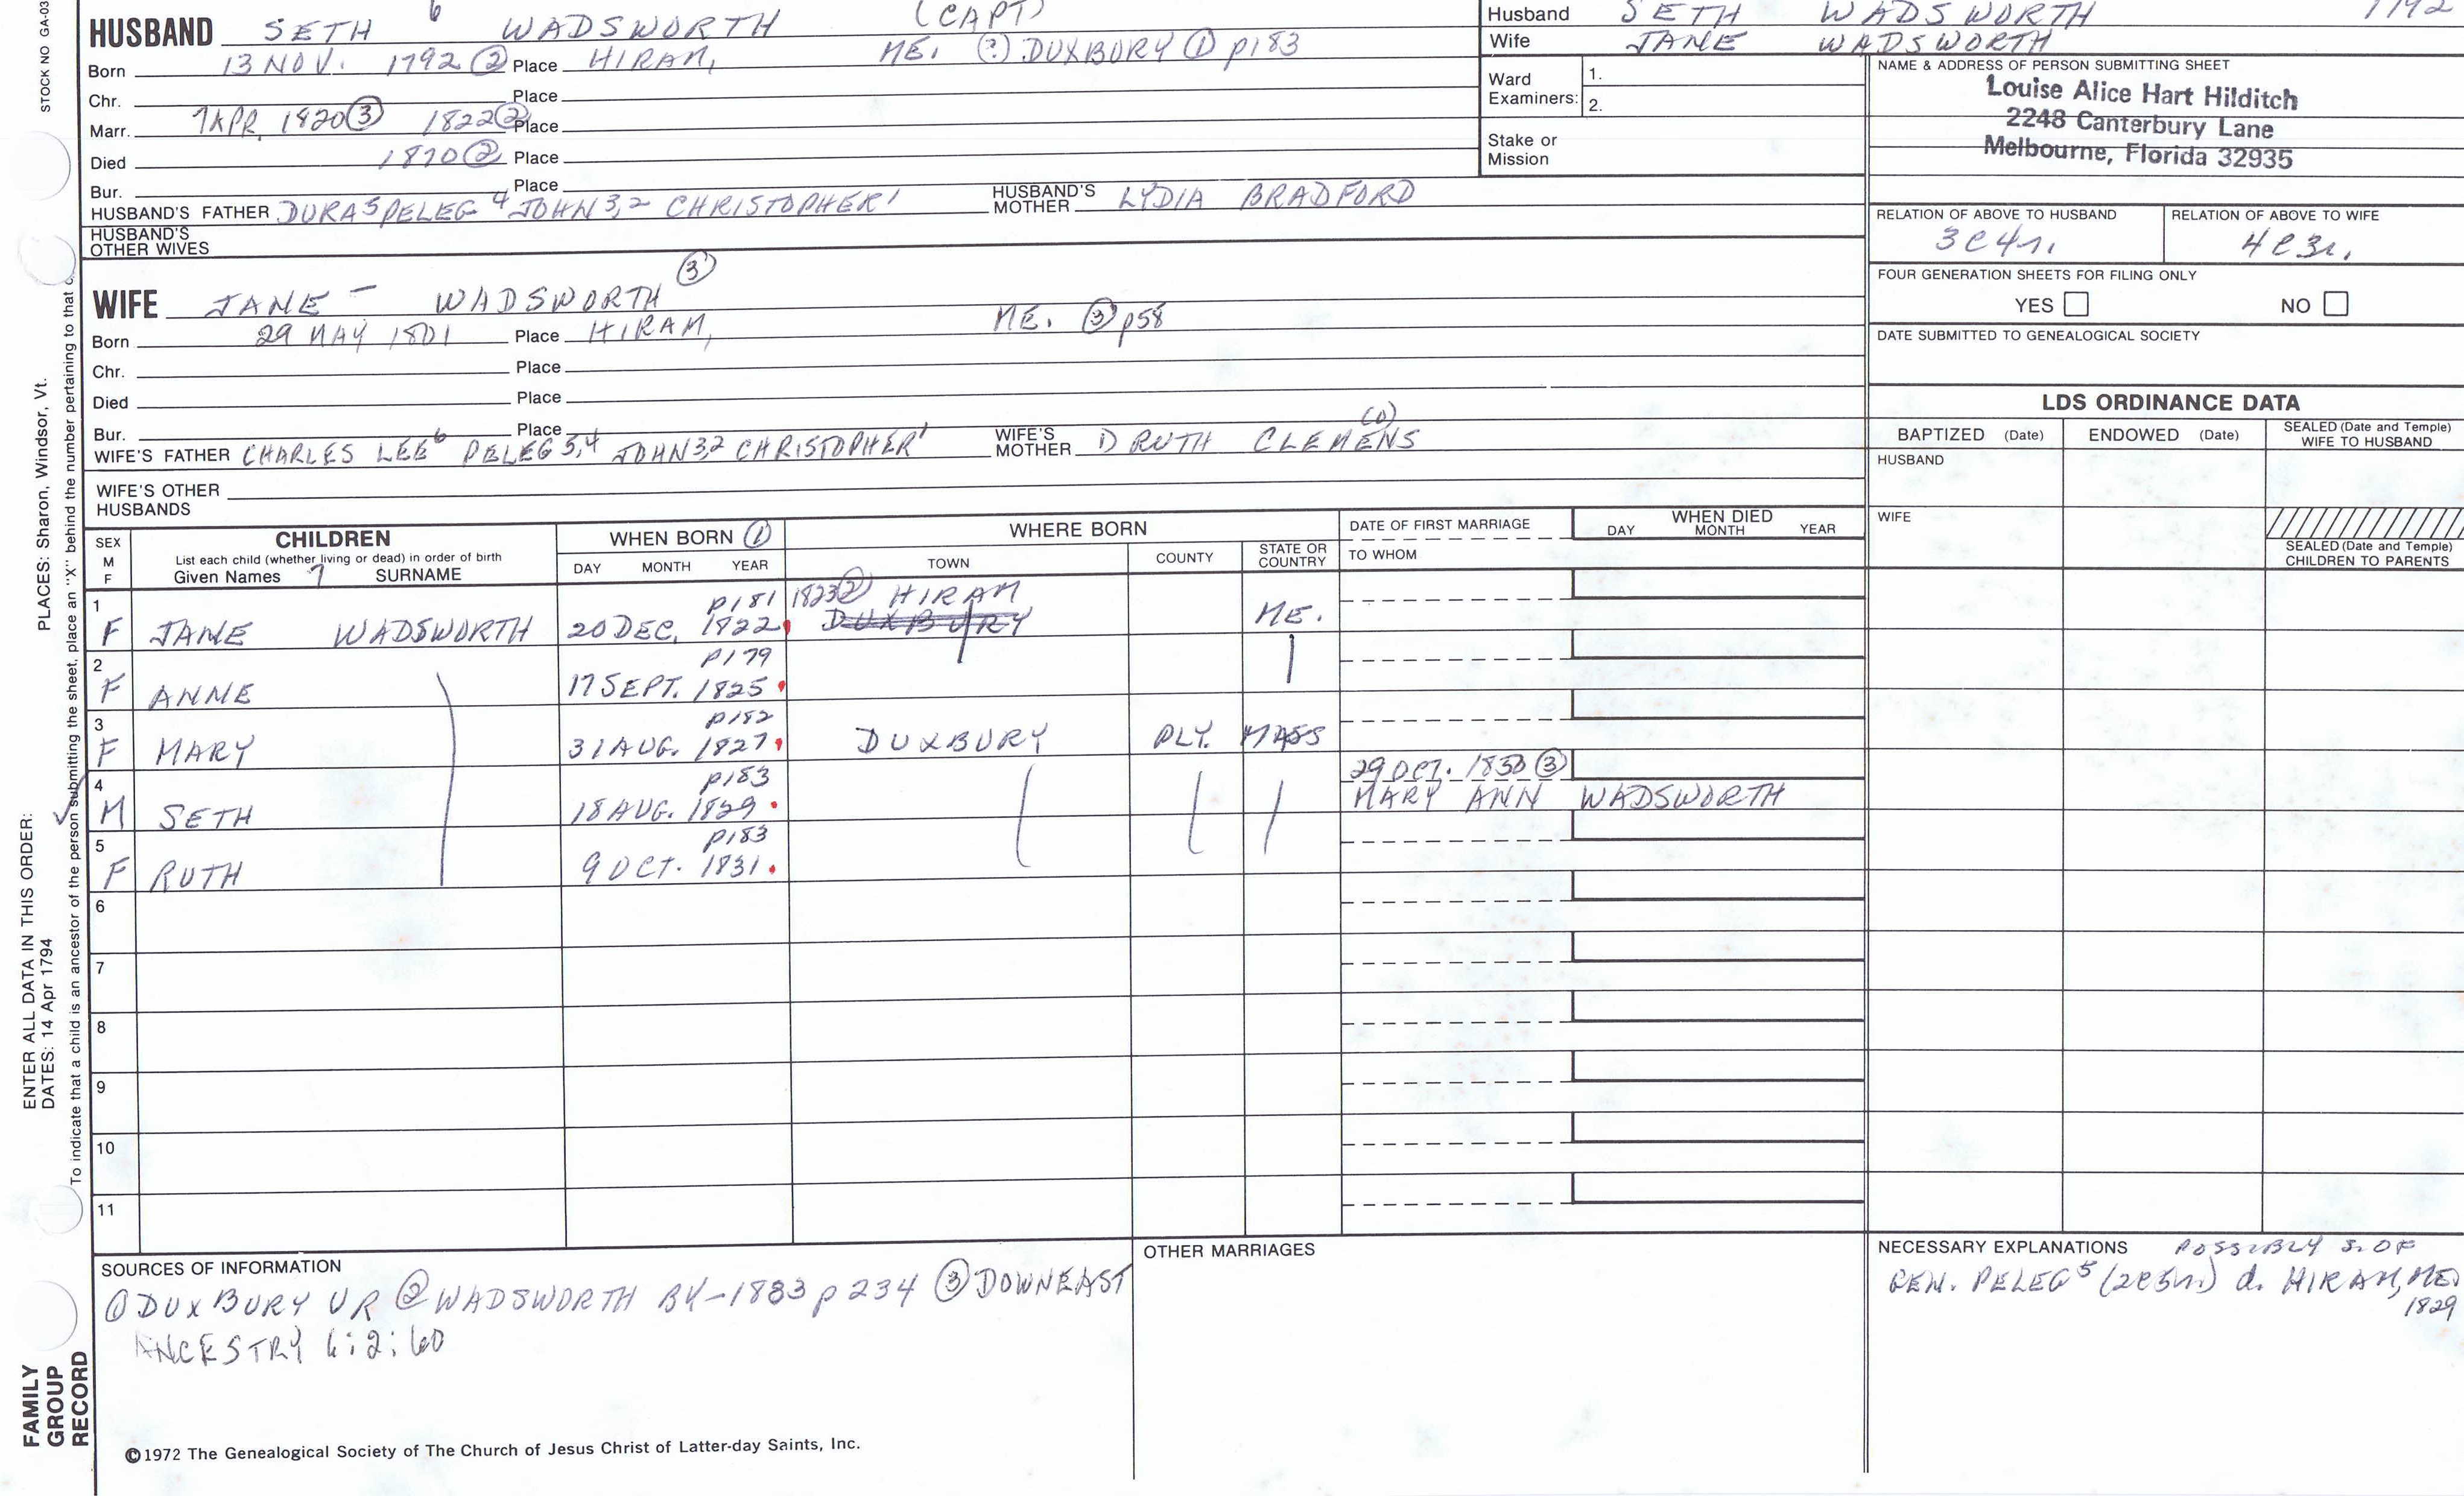 STOCK NO GA-03
HUSBAND SETH 6 WADSWORTH (CAPT)
Born 13 NOV. 1792 ② Place HIRAM, ME. (?) DUXBURY ① p183
Chr. Place
Marr. 7 APR. 1820 ③ 1822 ② Place
Died 1870 ② Place
Bur. Place
HUSBAND'S FATHER DURA 5 PELEG 4 JOHN 3,2 CHRISTOPHER 1 HUSBAND'S MOTHER LYDIA BRADFORD
HUSBAND'S OTHER WIVES
Husband SETH WADSWORTH 1792
Wife JANE WADSWORTH
Ward Examiners: 1.
2.
Stake or Mission
NAME & ADDRESS OF PERSON SUBMITTING SHEET
Louise Alice Hart Hilditch
2248 Canterbury Lane
Melbourne, Florida 32935
RELATION OF ABOVE TO HUSBAND RELATION OF ABOVE TO WIFE
3C4r. 4C3r.
FOUR GENERATION SHEETS FOR FILING ONLY
YES NO
DATE SUBMITTED TO GENEALOGICAL SOCIETY
WIFE JANE — WADSWORTH ③
Born 29 MAY 1801 Place HIRAM, ME. ③ p58
Chr. Place
Died Place
Bur. Place
WIFE'S FATHER CHARLES LEE 6 PELEG 5,4 JOHN 3,2 CHRISTOPHER 1 WIFE'S MOTHER D RUTH CLEMENS (O)
WIFE'S OTHER HUSBANDS
LDS ORDINANCE DATA
BAPTIZED (Date) ENDOWED (Date) SEALED (Date and Temple) WIFE TO HUSBAND
HUSBAND
WIFE
SEALED (Date and Temple) CHILDREN TO PARENTS
SEX M F CHILDREN WHEN BORN ① WHERE BORN DATE OF FIRST MARRIAGE WHEN DIED
List each child (whether living or dead) in order of birth
Given Names 7 SURNAME DAY MONTH YEAR TOWN COUNTY STATE OR COUNTRY TO WHOM DAY MONTH YEAR
p181 1823 ② HIRAM
1 F JANE WADSWORTH 20 DEC. 1822 DUXBURY ME.
p179
2 F ANNE 17 SEPT. 1825
p182
3 F MARY 31 AUG. 1827 DUXBURY PLY. MASS
p183 29 OCT. 1853 ③
4 M SETH 18 AUG. 1829 MARY ANN WADSWORTH
p183
5 F RUTH 9 OCT. 1831
6
7
8
9
10
11
SOURCES OF INFORMATION
① DUXBURY VR ② WADSWORTH BY - 1883 p 234 ③ DOWNEAST
ANCESTRY 6:2:60
OTHER MARRIAGES
NECESSARY EXPLANATIONS POSSIBLY S. OF
GEN. PELEG 5 (2C5r) d. HIRAM, ME.
1829
©1972 The Genealogical Society of The Church of Jesus Christ of Latter-day Saints, Inc.
FAMILY GROUP RECORD
ENTER ALL DATA IN THIS ORDER:
DATES: 14 Apr 1794
PLACES: Sharon, Windsor, Vt.
To indicate that a child is an ancestor of the person submitting the sheet, place an "X" behind the number pertaining to that